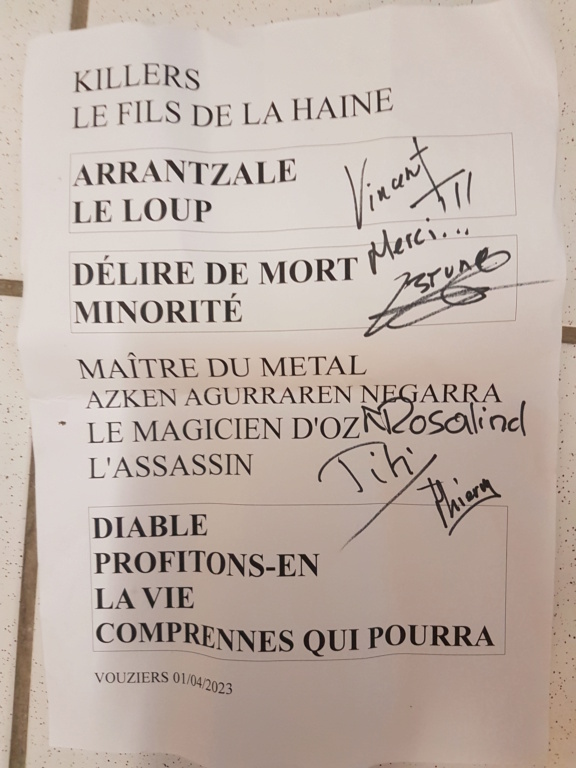 KILLERS
LE FILS DE LA HAINE
ARRANTZALE
LE LOUP
Vincent
DÉLIRE DE MORT
Merci...
MINORITÉ
Bruno
MAÎTRE DU METAL
AZKEN AGURRAREN NEGARRA
LE MAGICIEN D'OZ
Rosalind
L'ASSASSIN
Titi
Thierry
DIABLE
PROFITONS-EN
LA VIE
COMPRENNES QUI POURRA
VOUZIERS 01/04/2023